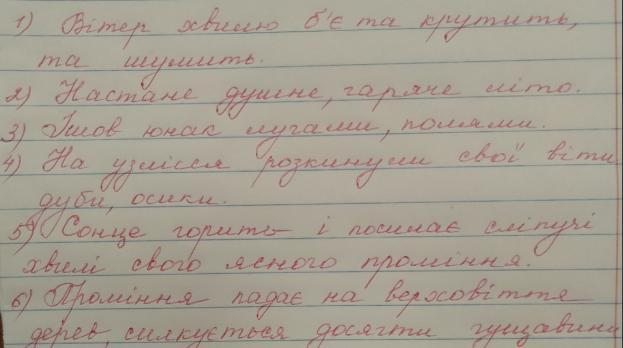 1) Вітер хвилю б'є та крутить,
та шумить.
2) Настане душне, гаряче літо.
3) Ішов юнак лугами, полями.
4) На узлісся розкинули свої віти
дуби, осики.
5) Сонце горить і посилає сліпучі
хвилі свого ясного проміння.
6) Проміння падає на верховіття
дерев, силкується досягти гущавини